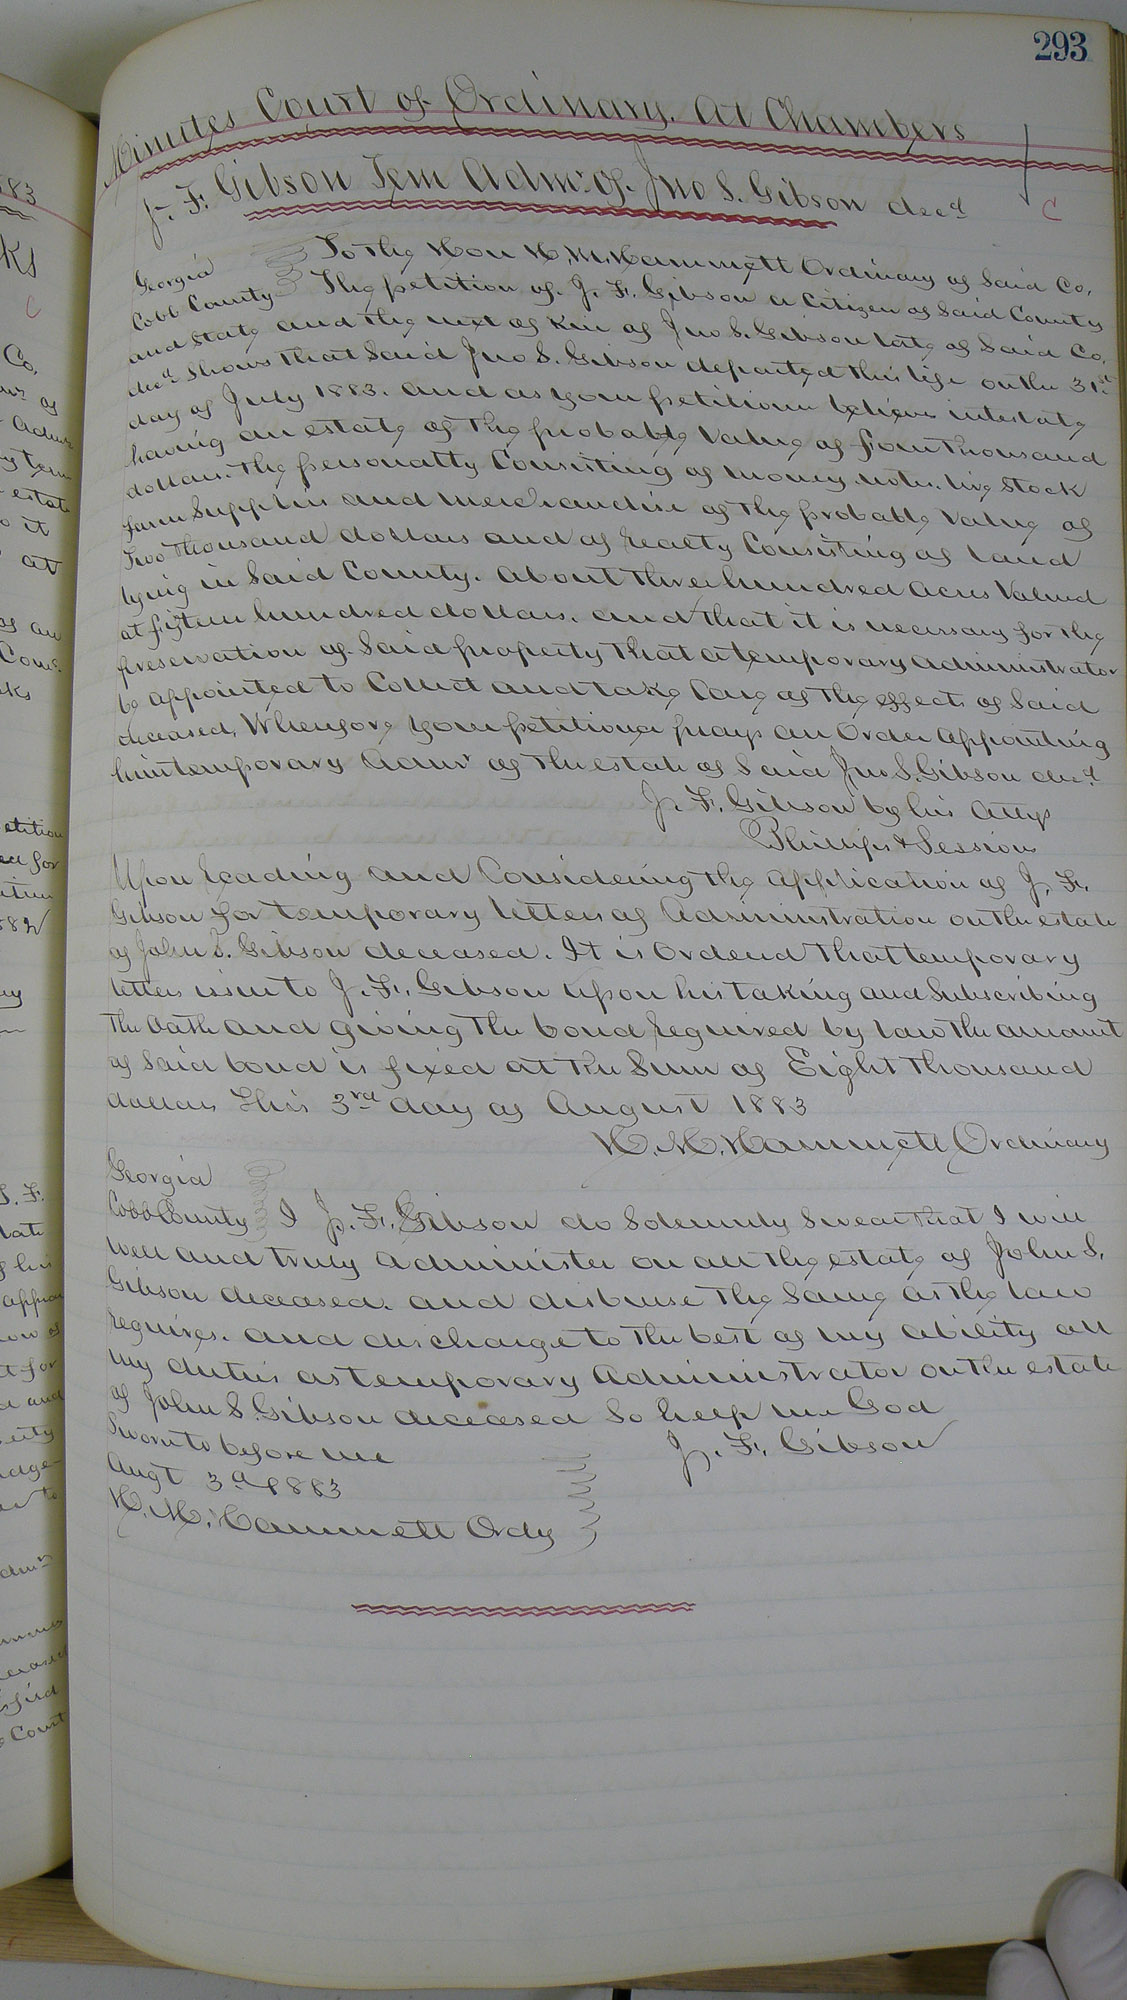 293
Minutes Court of Ordinary. At Chambers
J. F. Gibson Tem Admr. of Jno S. Gibson decd
C
Georgia
Cobb County
To the Hon H. M. Hammett Ordinary of Said Co.
The petition of J. F. Gibson a Citizen of Said County
and State and the next of Kin of Jno S. Gibson late of Said Co.
decd Shows that Said Jno S. Gibson departed this life on the 31st
day of July 1883. and as your petitioner believes intestate
having an estate of the probable value of four thousand
dollars. The personalty Consisting of money. notes. live Stock
farm Supplies and merchandise of the probable value of
Two thousand dollars and of realty Consisting of land
lying in Said County. about three hundred acres Valued
at fifteen hundred dollars. and that it is necessary for the
preservation of Said property that a temporary administrator
be appointed to Collect and take Care of the effects of Said
deceased, Wherefore your petitioner prays an Order appointing
him temporary Admr of the estate of Said Jno S. Gibson decd
J. F. Gibson by his Attys
Phillips & Session
Upon reading and Considering the application of J. F.
Gibson for temporary letters of Administration on the estate
of John S. Gibson deceased. It is Ordered that temporary
letters issue to J. F. Gibson upon his taking and Subscribing
the Oath and giving the bond required by law the amount
of Said bond is fixed at the Sum of Eight thousand
dollars This 3rd day of August 1883
H. M. Hammett Ordinary
Georgia
Cobb County I J. F. Gibson do Solemnly Swear that I will
well and truly administer on all the estate of John S.
Gibson deceased. and disburse the Same as the law
requires. and discharge to the best of my ability all
my duties as temporary Administrator on the estate
of John S. Gibson deceased So help me God
Sworn to before me
J. F. Gibson
Augt 3d 1883
H. M. Hammett Ordy